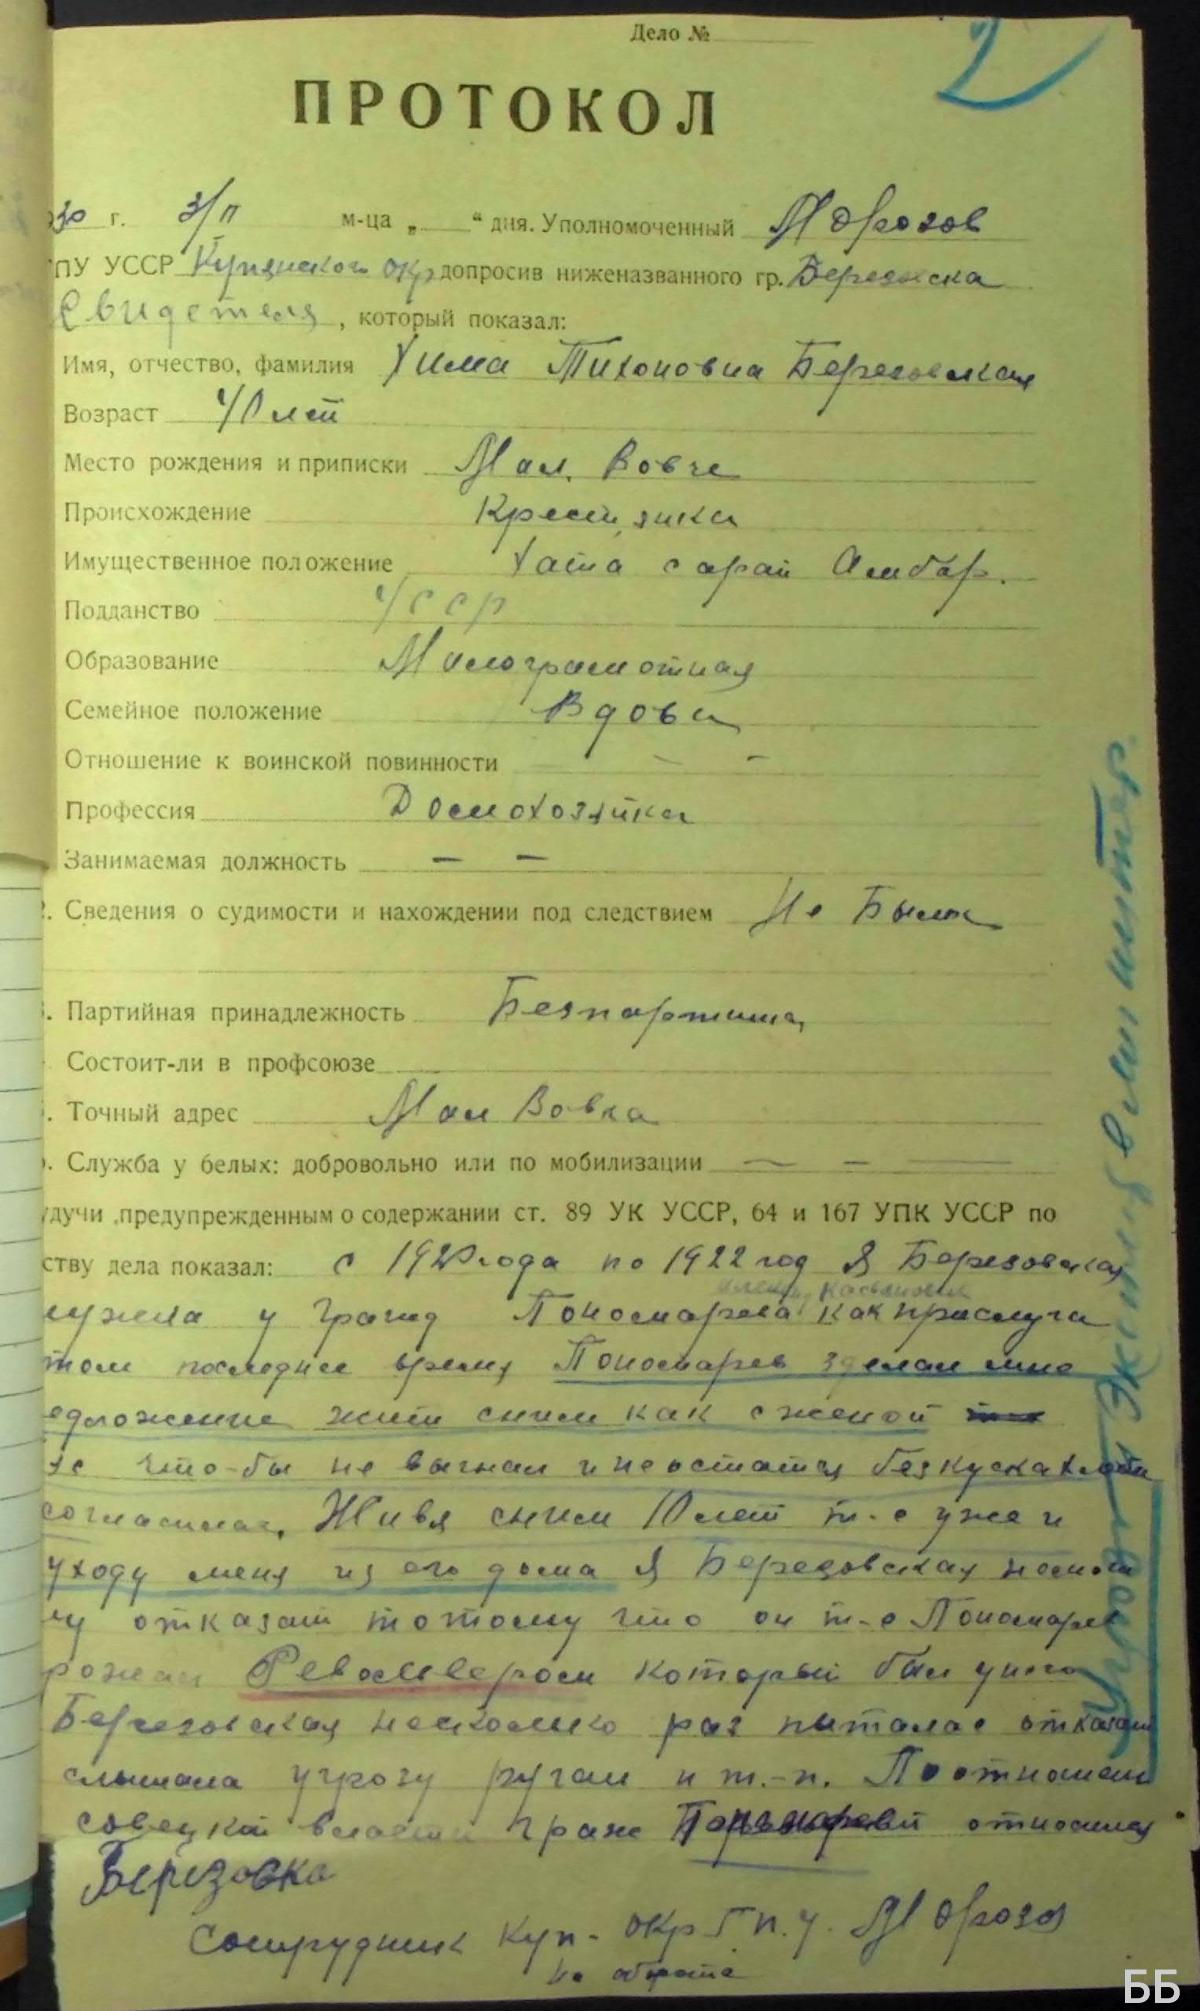 Дело №
2
ПРОТОКОЛ
30 г. 3/п м-ца „ “ дня. Уполномоченный Морозов
ПУ УССР Купянского окр допросив ниженазванного гр. Березовска
Свидетеля, который показал:
Имя, отчество, фамилия Хима Тихоновна Березовская
Возраст 40 лет
Место рождения и приписки Мал. Вовче
Происхождение Крестянка
Имущественное положение Хата сарай Амбар.
Подданство УССР
Образование Малограмотная
Семейное положение Вдова
Отношение к воинской повинности — -
Профессия Домохозяйка
Занимаемая должность — —
2. Сведения о судимости и нахождении под следствием Не Была
Партийная принадлежность Безпартийна
Состоит-ли в профсоюзе
Точный адрес Мал Вовча
Служба у белых: добровольно или по мобилизации — — —
удучи предупрежденным о содержании ст. 89 УК УССР, 64 и 167 УПК УССР по
ству дела показал: с 1920 года по 1922 год Я Березовская
лужила у гражд Пономарева как прислуга
том последнее время Пономарев зделал мне
едложение жить сним как с женой
что-бы не выгнал и неостатся без куска хлеба
согласилас. Живя сним 10 лет т-е уже и
уходу меня из его дома Я Березовская немогла
му отказат потому что он т-е Пономарев
рожал Револьвером который был унего
Березовская несколько раз пыталас отказат
слышала угрозу ругал и т.-п. По отношен
совецкой власти граж Пономарев относился
Берёзовка
Сотрудник Куп- окр Г п. у. Морозов
На обороте
ББ